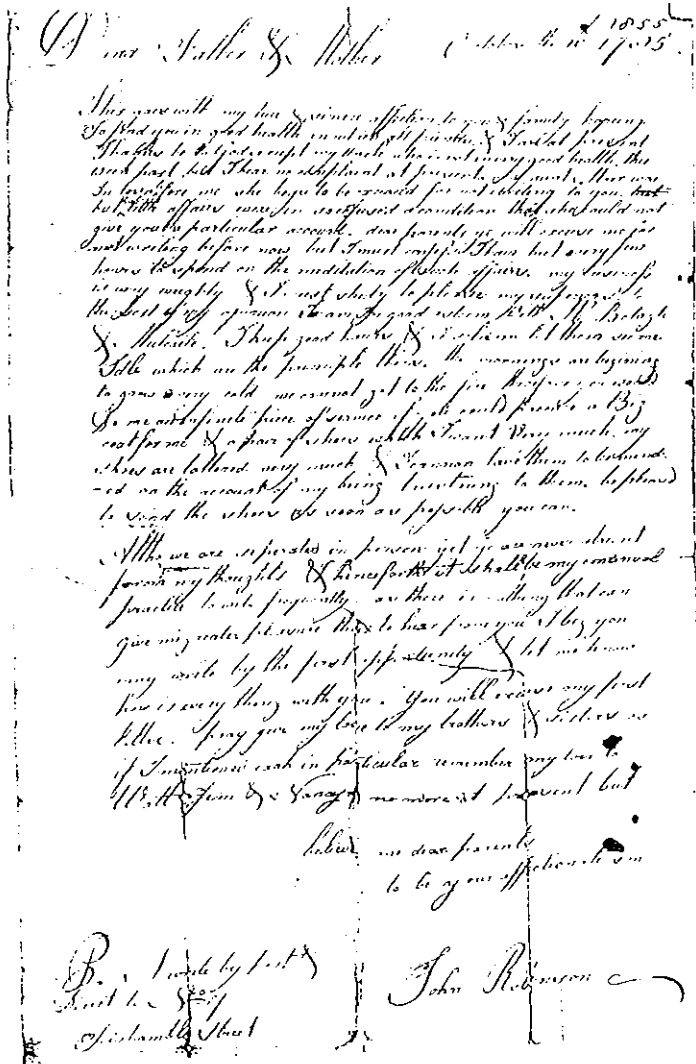 1855
Dear Father & Mother October the 10 17
This goes with my love & sincere affection to you & family hoping
to find you in good health in which all friends & I are at present
Thanks to God except my Uncle who is not in very good health this
week past but I hear no complaint at present
she hopes to be excused for not writing to you
but affairs were in a confused condition that she could not
give you a particular account. dear parents ye will excuse me for
not writing before now but I must confess I have but very few
hours to spend on the meditation of such affairs. my business
is very weighty & I must study to please my
the best of my opinion I am in good esteem with Mr
& I keep good hours & seldom let them see me
Idle which are the principle things. the mornings are begining
to grow very cold we cannot get to the fire therefore
do me an infinite piece of service if ye could procure a Big
coat for me & a pair of shoes which I want Very much. my
shoes are tattered very much & I cannot have them to be mend
-ed on the account of my being to them. be pleased
to send the shoes as soon as possible you can.
Altho we are seperated in person yet ye are never absent
from my thoughts & henceforth it shall be my continual
practice to write frequently. as there is nothing that can
give me greater pleasure than to hear from you I beg you
may write by the first opportunity & let me know
how is every thing with you. You will excuse my first
letter. pray give my love to my brothers & sisters as
if I mentioned each in particular remember my love to
& Nancy no more at present but
believe me dear parents
to be your affectionate son
John Robinson
PS. I wrote by post
Direct to No
Fishamble Street